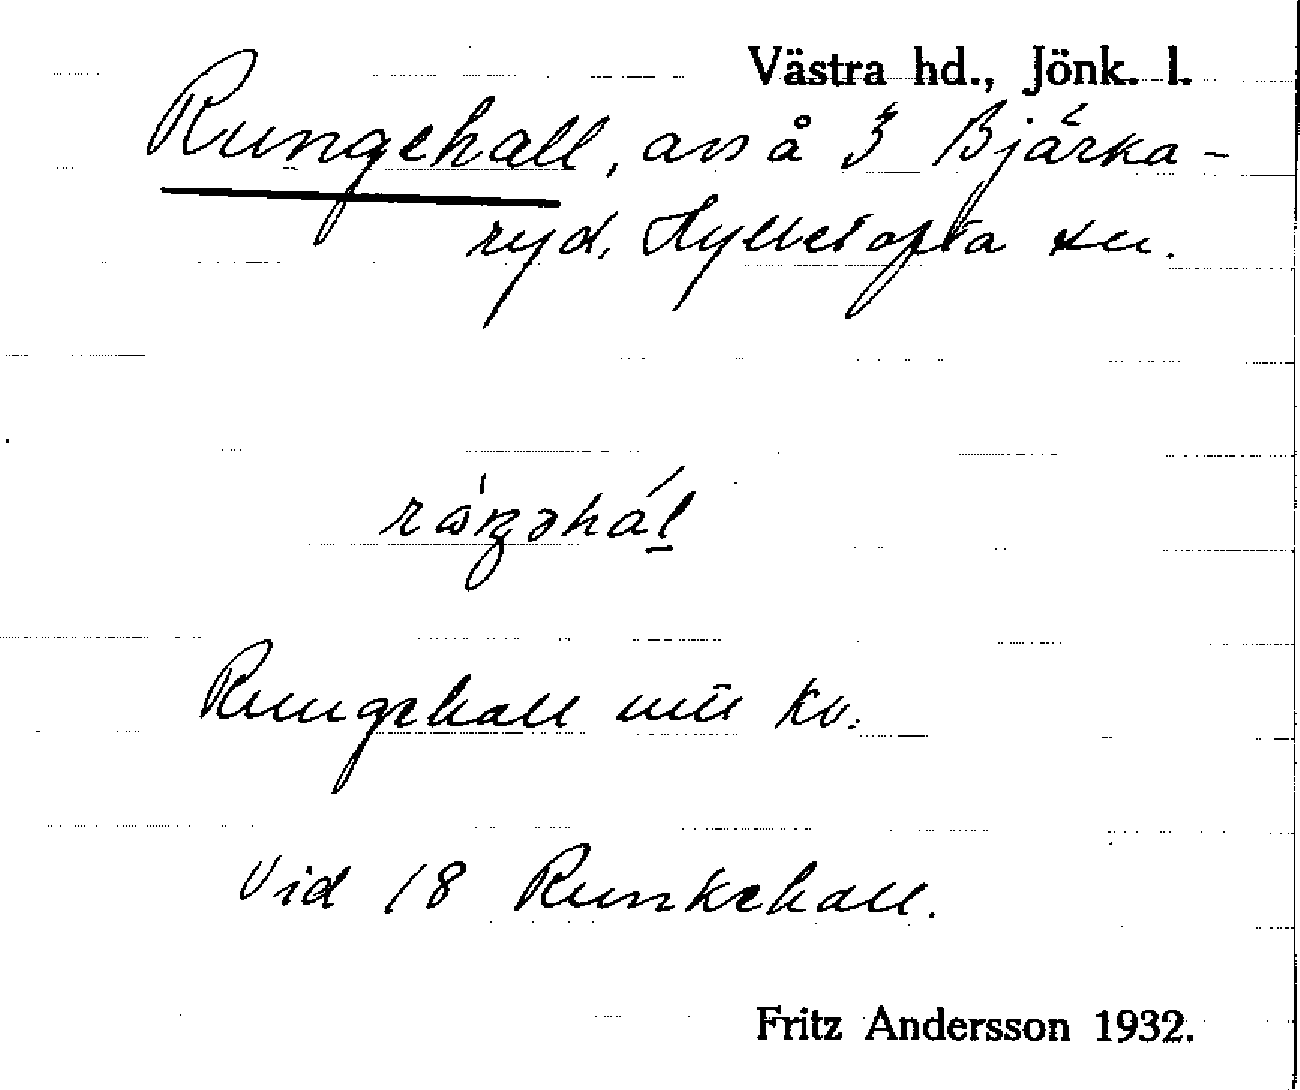 Västra hd., Jönk. l.
Rungehall, avs å 3 Bjärka-
ryd, Hylletofta sn.
Rungehall mü kv.
Vid 18 Runkehall.
Fritz Andersson 1932.